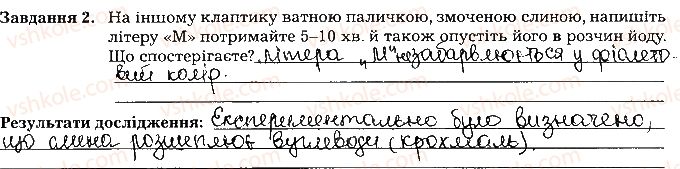 Завдання 2. На іншому клаптику ватною паличкою, змоченою слиною, напишіть
літеру «М» потримайте 5–10 хв. й також опустіть його в розчин йоду.
Що спостерігаєте? літера "М" незабарвлюється у фіолето
вий колір.
Результати дослідження: Експерементально було визначено,
що слина розщеплює вуглеводи (крохмаль).